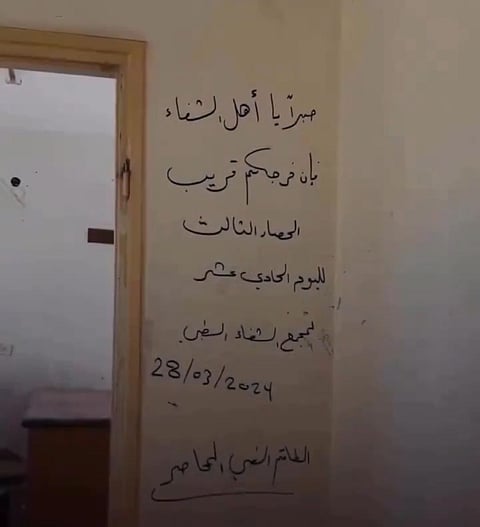 صبراً يا أهل الشفاء
فإن فرجكم قريب
الحصار الثالث
لليوم الحادي عشر
لمجمع الشفاء الطبي
28/03/2024
الطاقم الطبي المحاصر